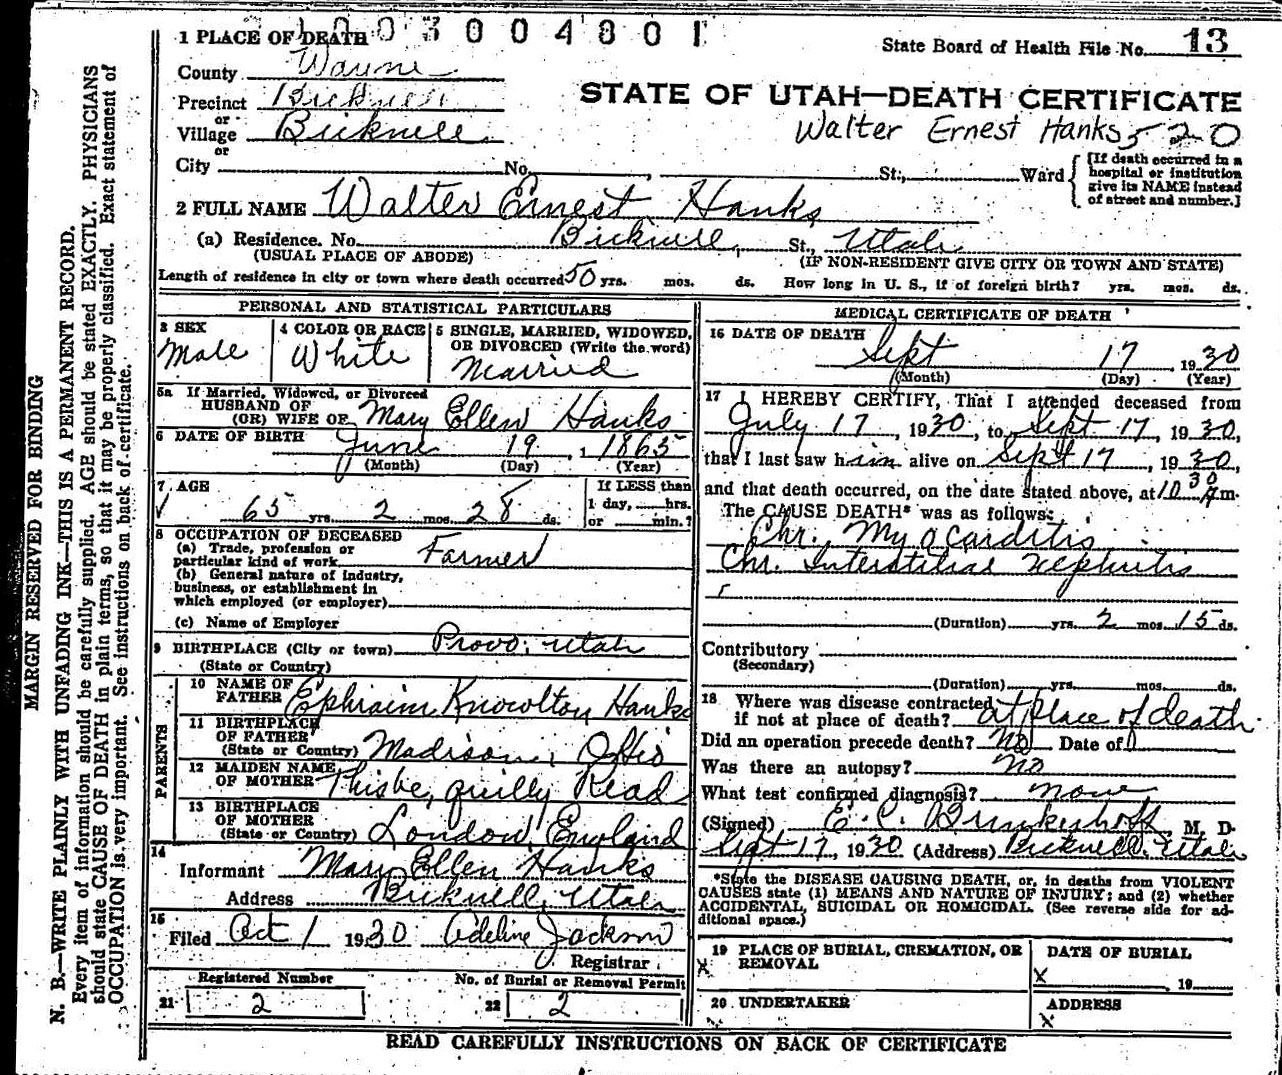 1003004801
1 PLACE OF DEATH
State Board of Health File No. 13
County Wayne
STATE OF UTAH—DEATH CERTIFICATE
Precinct Bicknell
or
Walter Ernest Hanks 520
Village Bicknell
or
City No. , St., Ward
[If death occurred in a
hospital or institution
give its NAME instead
of street and number.]
2 FULL NAME Walter Ernest Hanks
(a) Residence. No. Bicknell, St., Utah
(USUAL PLACE OF ABODE) (IF NON-RESIDENT GIVE CITY OR TOWN AND STATE)
Length of residence in city or town where death occurred 50 yrs. mos. ds. How long in U. S., if of foreign birth? yrs. mos. ds.
PERSONAL AND STATISTICAL PARTICULARS
3 SEX
Male
4 COLOR OR RACE
White
5 SINGLE, MARRIED, WIDOWED,
OR DIVORCED (Write the word)
Married
5a If Married, Widowed, or Divorced
HUSBAND OF
(OR) WIFE OF Mary Ellen Hanks
6 DATE OF BIRTH June 19, 1 1865
(Month) (Day) (Year)
7 AGE
65 yrs. 2 mos. 28 ds.
If LESS than
1 day, hrs.
or min.?
8 OCCUPATION OF DECEASED
(a) Trade, profession or
particular kind of work Farmer
(b) General nature of industry,
business, or establishment in
which employed (or employer)
(c) Name of Employer
9 BIRTHPLACE (City or town) Provo, Utah
(State or Country)
PARENTS
10 NAME OF
FATHER Ephraim Knowlton Hanks
11 BIRTHPLACE
OF FATHER
(State or Country) Madison, Ohio
12 MAIDEN NAME
OF MOTHER Thisbe, quilly Read
13 BIRTHPLACE
OF MOTHER
(State or Country) London, England
14
Informant Mary Ellen Hanks
Address Bicknell, Utah
15
Filed Oct 1 1930 Adeline Jackson
Registrar
Registered Number
21 2
No. of Burial or Removal Permit
22 2
MEDICAL CERTIFICATE OF DEATH
16 DATE OF DEATH
Sept 17 1930
(Month) (Day) (Year)
17 I HEREBY CERTIFY, That I attended deceased from
July 17, 1930, to Sept 17, 1930,
that I last saw him alive on Sept 17, 1930,
and that death occurred, on the date stated above, at 10 30 A m.
The CAUSE DEATH* was as follows:
Chr. Myocarditis
Chr. Interstitial Nephritis
(Duration) yrs. 2 mos. 15 ds.
Contributory
(Secondary)
(Duration) yrs. mos. ds.
18 Where was disease contracted
if not at place of death? at place of death
Did an operation precede death? No Date of
Was there an autopsy? no
What test confirmed diagnosis? none
(Signed) E. C. Brinkerhoff, M. D.
Sept 17, 1930 (Address) Bicknell, Utah
*State the DISEASE CAUSING DEATH, or, in deaths from VIOLENT
CAUSES state (1) MEANS AND NATURE OF INJURY; and (2) whether
ACCIDENTAL, SUICIDAL OR HOMICIDAL. (See reverse side for ad-
ditional space.)
19 PLACE OF BURIAL, CREMATION, OR
REMOVAL
X
DATE OF BURIAL
X , 19
20 UNDERTAKER
ADDRESS
X
READ CAREFULLY INSTRUCTIONS ON BACK OF CERTIFICATE
MARGIN RESERVED FOR BINDING
N. B.—WRITE PLAINLY WITH UNFADING INK—THIS IS A PERMANENT RECORD.
Every item of information should be carefully supplied. AGE should be stated EXACTLY. PHYSICIANS
should state CAUSE OF DEATH in plain terms, so that it may be properly classified. Exact statement of
OCCUPATION is very important. See instructions on back of certificate.